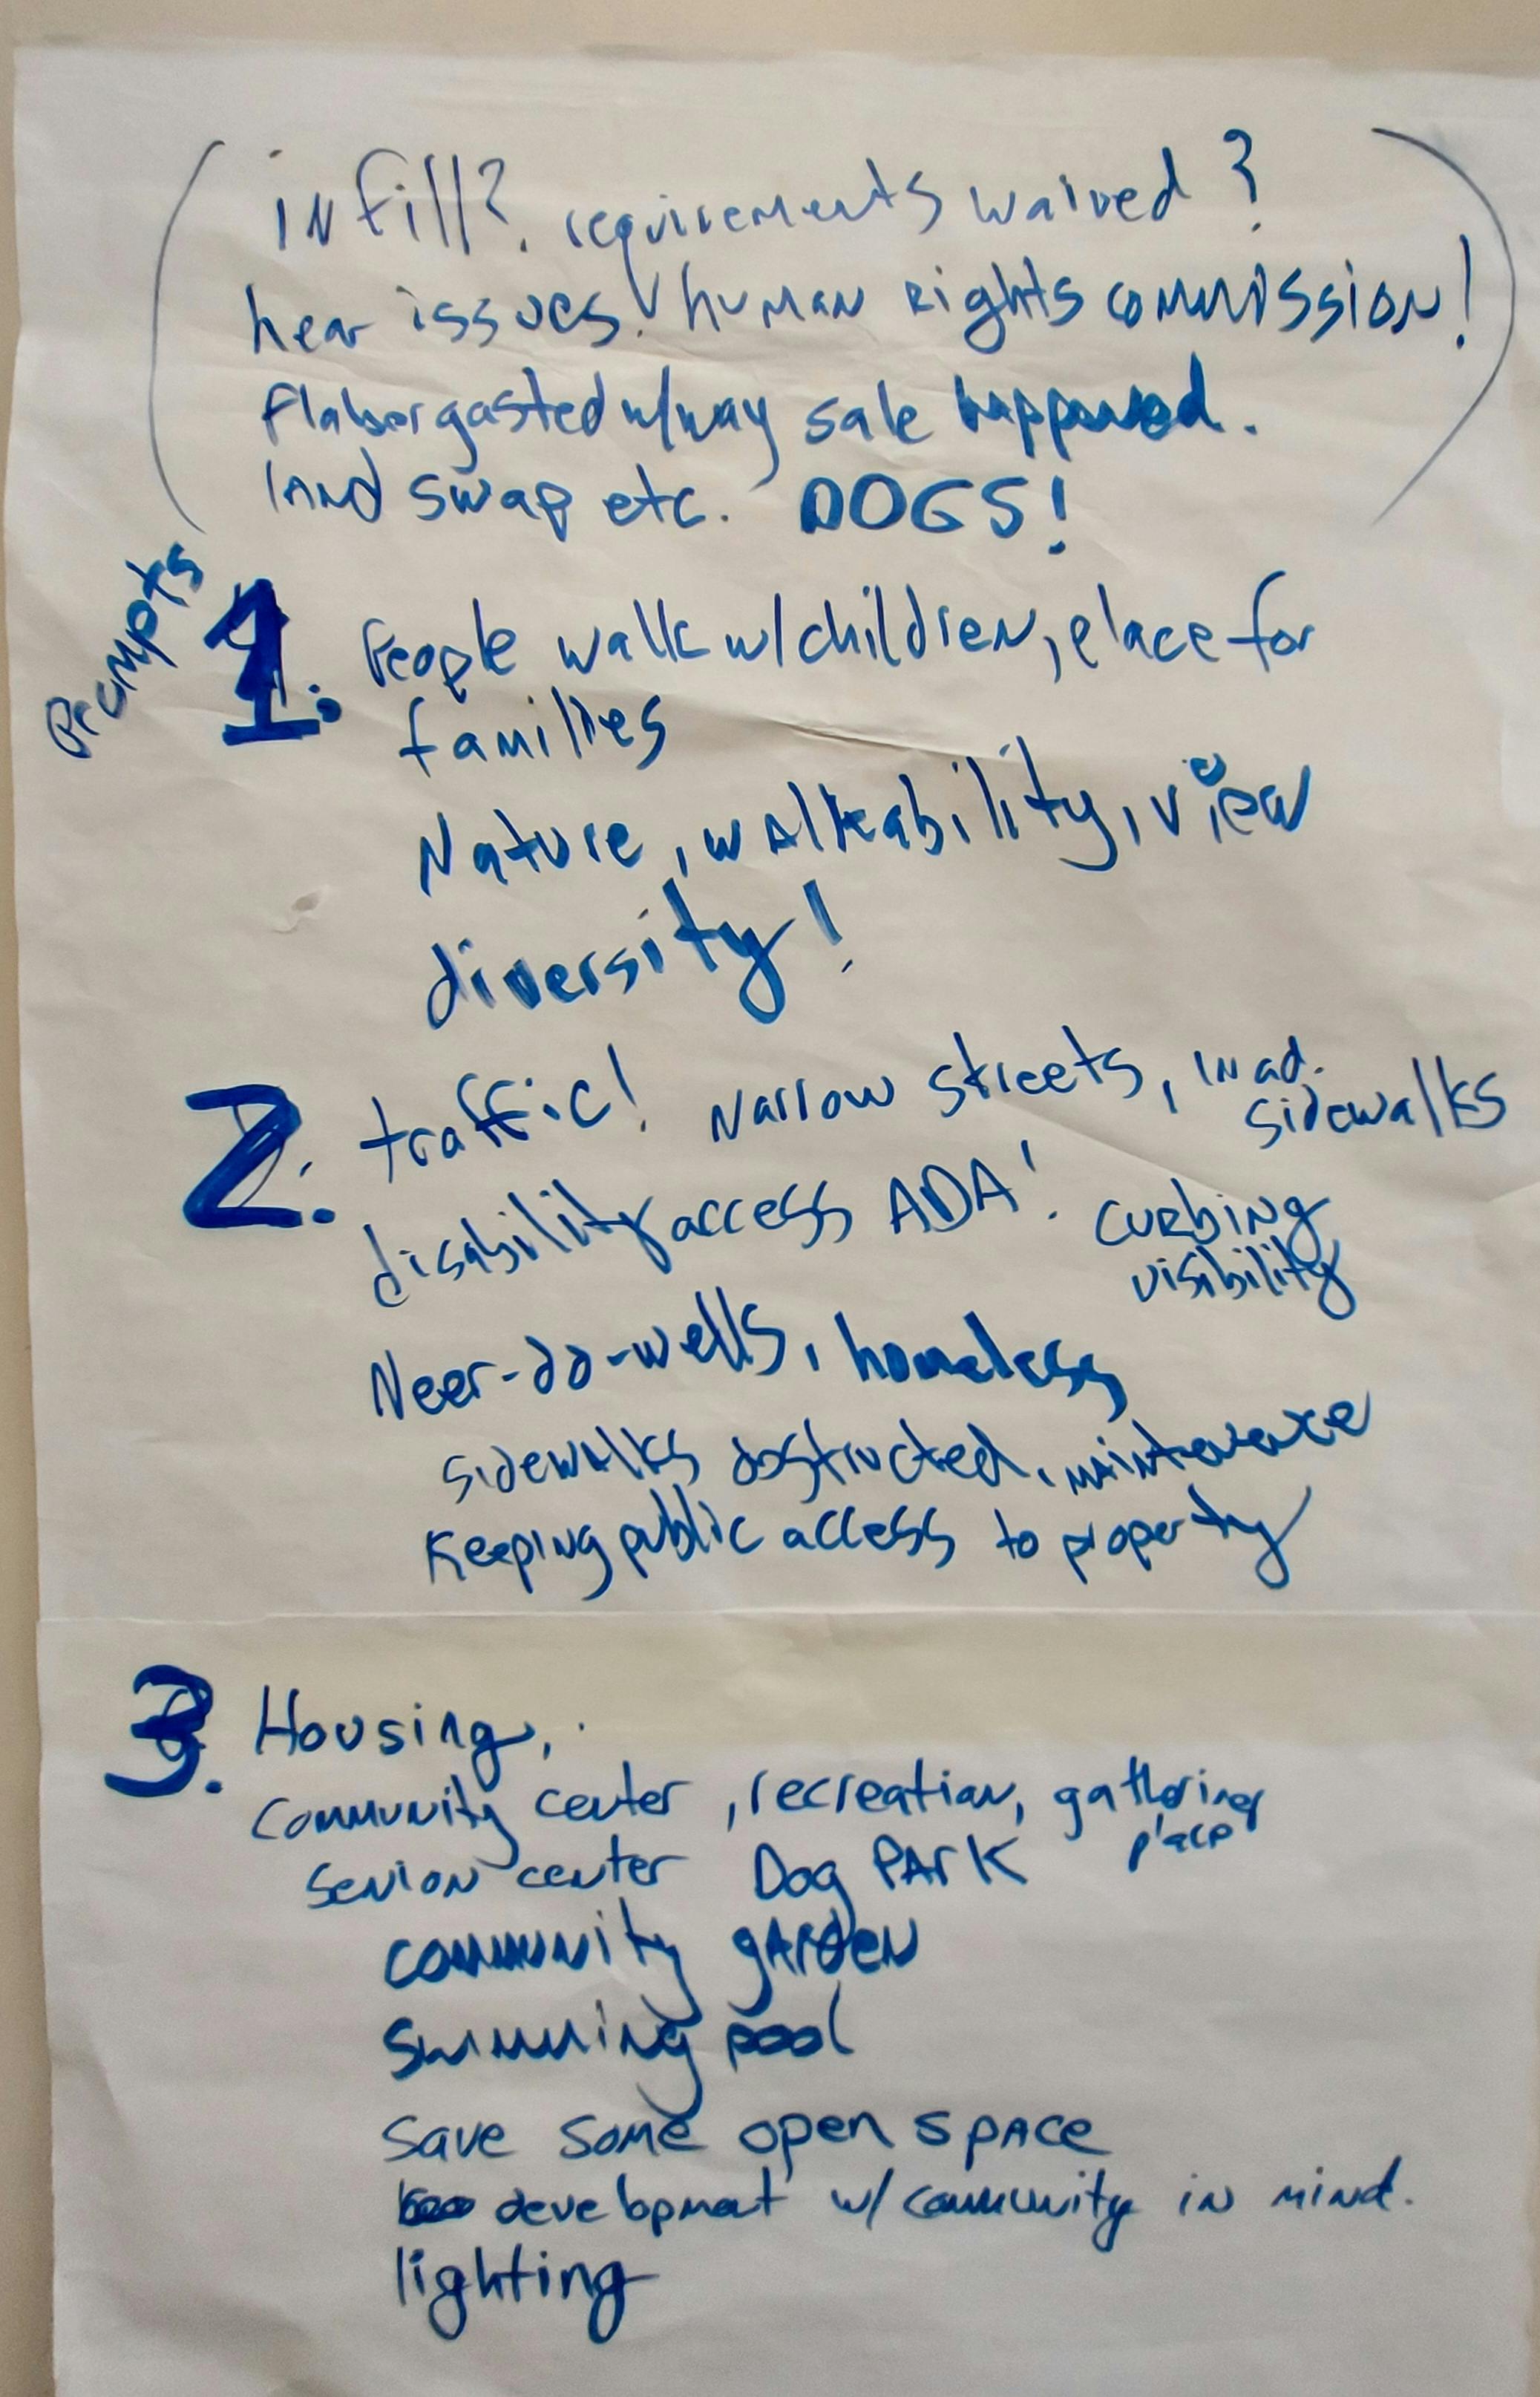 infill? requirements waived?
hear issues! human rights commission!
Flabergasted w/way sale happened.
land swap etc. DOGS!
Prompts
1. People walk w/children, place for
families
Nature, walkability, view
diversity!
2. traffic! narrow streets, inad.
sidewalks
disability access ADA! curbing
visibility
Neer-do-wells, homeless
sidewalks obstructed, maintenence
Keeping public access to property
3. Housing,
Community center, recreation, gathering
place
Senior center Dog Park
community garden
swimming pool
Save some open space
development w/ community in mind.
lighting